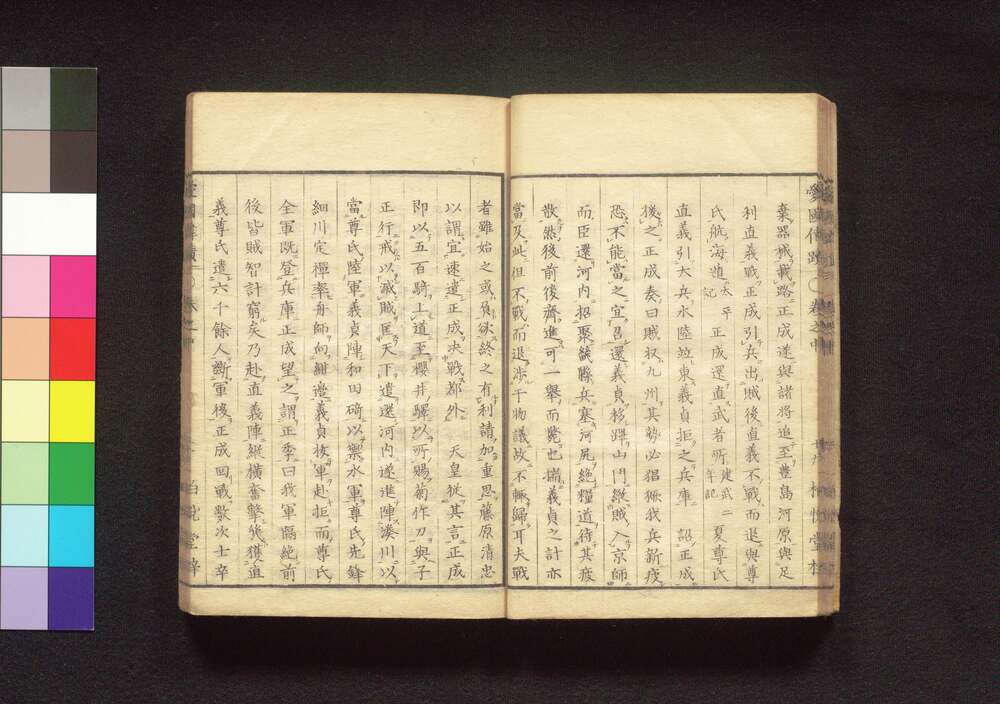 棄器械載路正成遂與諸將追至豊島河原與足
利直義戰正成引兵出賊後直義不戰而退與尊
氏航海遁太平記正成還直武者所建武二年記夏尊氏
直義引大兵水陸竝東義貞拒之兵庫 詔正成
後之正成奏曰賊收九州其勢必猖獗我兵新疲
恐不能當之宜召還義貞移蹕山門縱賊入京師
而臣還河内招聚畿縣兵塞河尻絶糧道待其疲
散然後前後齊進可一擧而斃也揣義貞之計亦
當及此但不戰而退渉干物議故不輙歸耳夫戰
者雖始之或負欲終之有利請加重思藤原清忠
以謂宜速遣正成决戰郊外 天皇從其言正成
即以五百騎上道至櫻井驛以所賜菊作刀與子
正行戒以滅賊匡天下遣還河内遂進陣湊川以
當尊氏陸軍義貞陣和田碕以禦水軍尊氏先鋒
細川定禪率舟師向紺邉義貞拔軍赴拒而尊氏
全軍既登兵庫正成望之謂正季曰我軍隔絶前
後皆賊智計窮矣乃赴直義陣縱横奮擊幾獲直
義尊氏遣六千餘人斷軍後正成回戰數次士卒